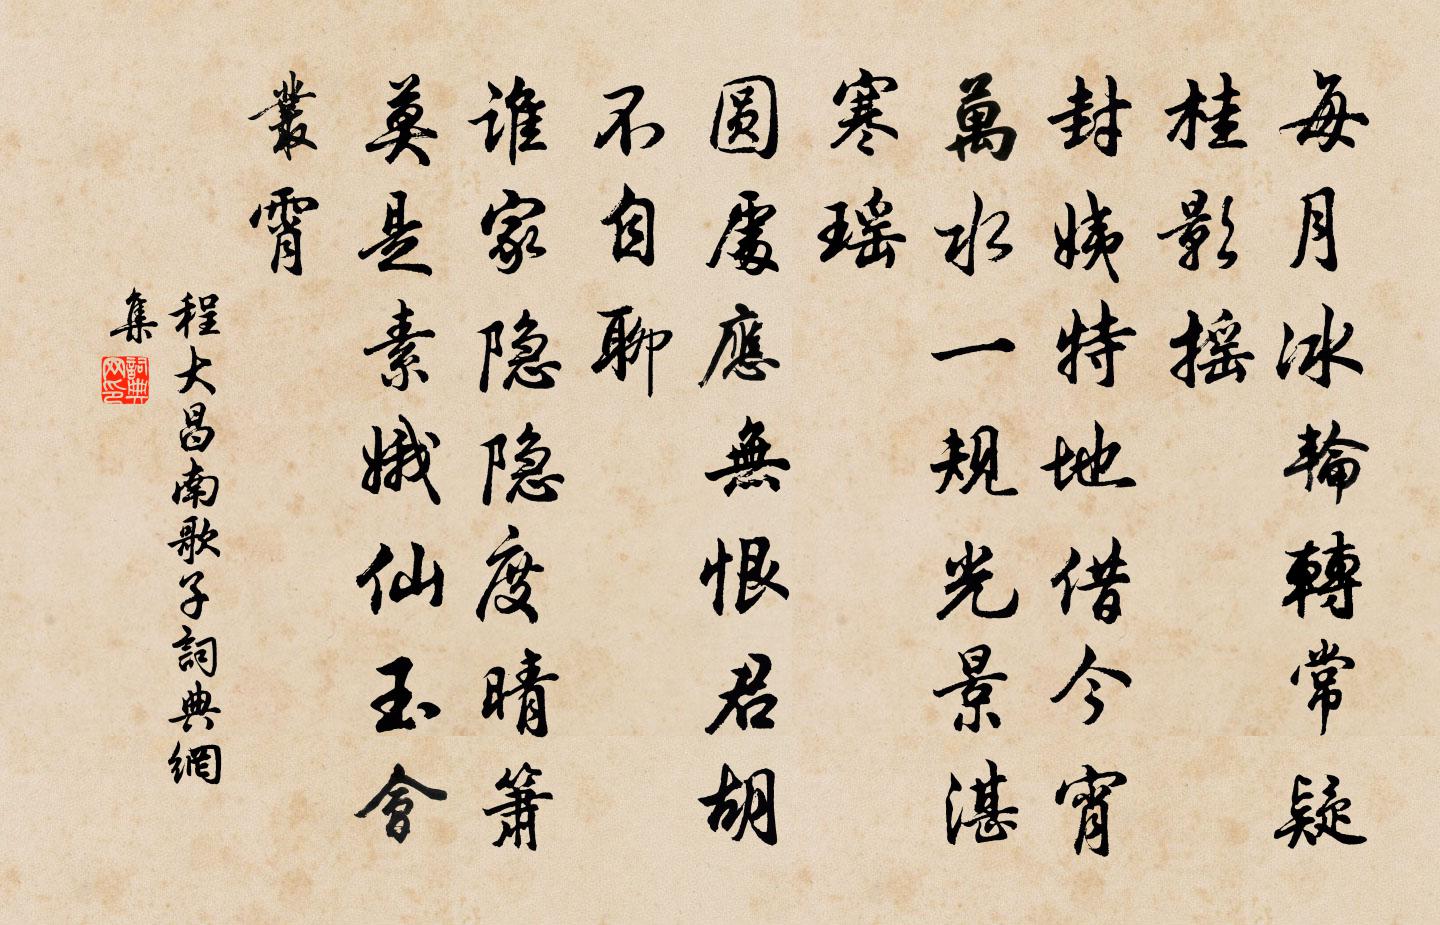 每月冰輪轉常疑
桂影摇
封姨特地借今宵
萬水一規光景湛
寒瑶
圆處應無恨君胡
不自聊
谁家隐隐度晴箫
莫是素娥仙玉會
叢霄
程大昌南歌子詞典網
集
詞典网印